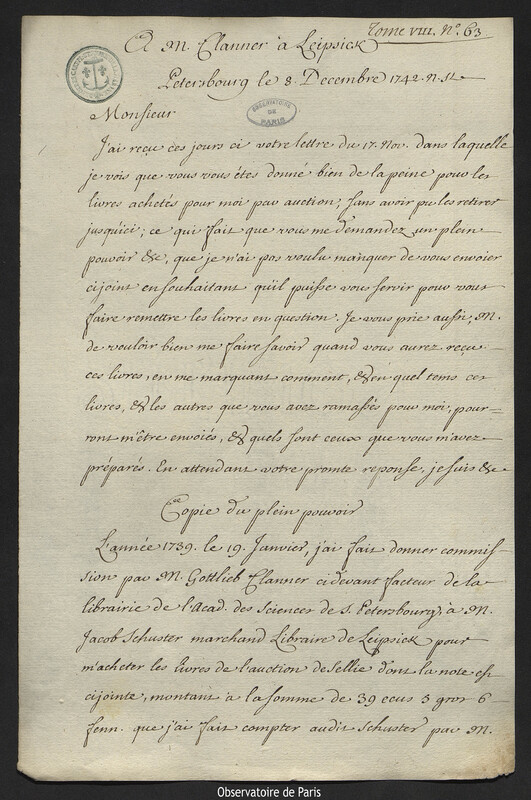 Tome VIII. N.º 63
A M. Clanner à Leipsick
Petersbourg le 8. Decembre 1742. n. st.
OBSERVATOIRE DE PARIS
Monsieur
J'ai reçu ces jours ci votre lettre du 17. Nov. dans laquelle
je vois que vous vous étes donné bien de la peine pour les
livres achetés pour moi par auction; sans avoir pu les retirer
jusqu'ici; ce qui fait que vous me demandez un plein
pouvoir &c, que je n'ai pas voulu manquer de vous envoier
cijoint en souhaitant qu'il puisse vous servir pour vous
faire remettre les livres en question. Je vous prie aussi, M.
de vouloir bien me faire savoir quand vous aurez reçu
ces livres, en me marquant comment, & en quel tems ces
livres, & les autres que vous avez ramassés pour moi, pour-
ront m'être envoiés, & quels sont ceux que vous m'avez
préparés. En attendant votre promte reponse, je suis &c
Copie du plein pouvoir
L'année 1739. le 19. Janvier, j'ai fait donner commis-
sion par M. Gottlieb Clanner cidevant facteur de la
librairie de l'Acad. des Sciences de S. Petersbourg, à M.
Jacob Schuster marchand Libraire de Leipsick pour
m'acheter les livres de l'auction de Sellie dont la note est
cijointe, montant à la somme de 39 ecus 3 gros 6
fenn. que j'ai fait compter audit Schuster par M.
Observatoire de Paris